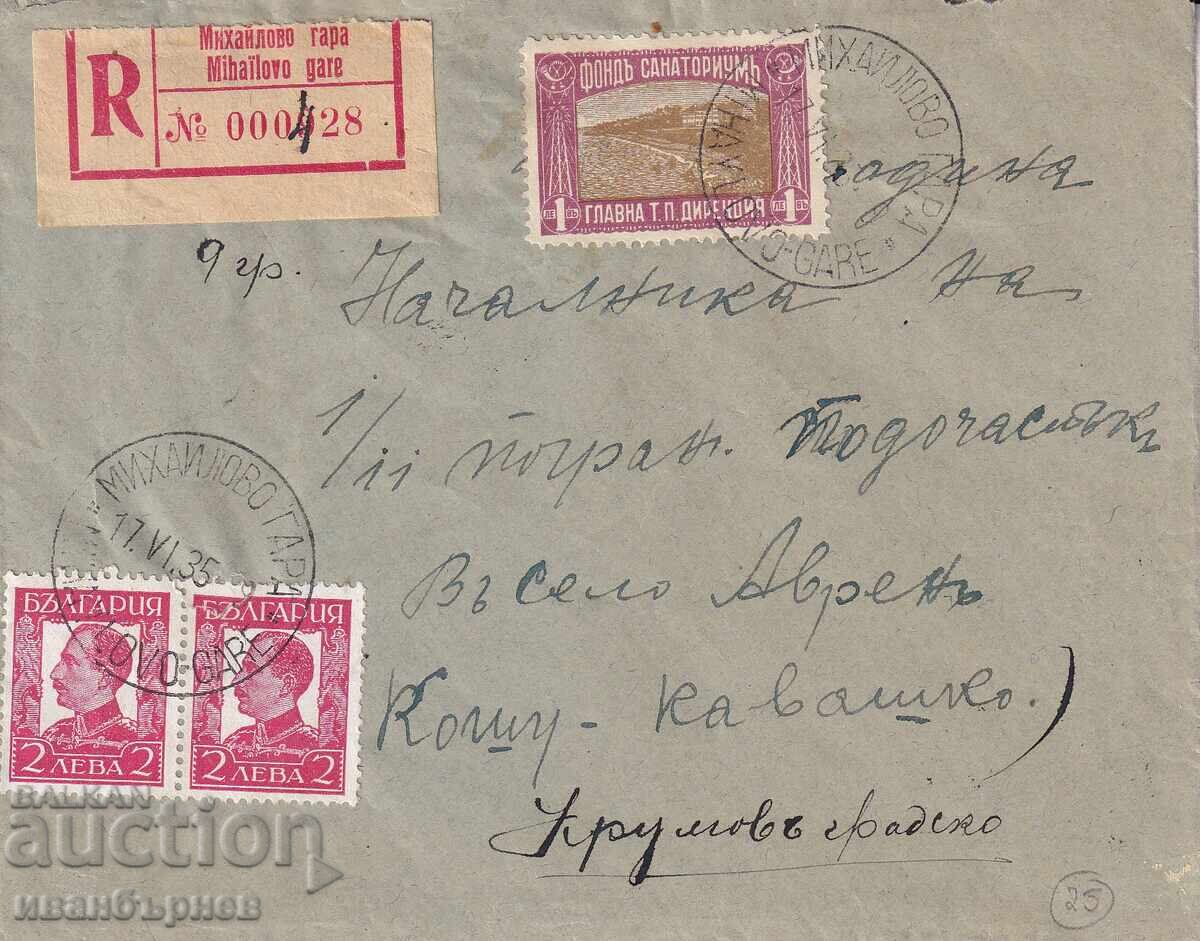 Михайлово гара
Mihaïlovo gare
R
№ 000428
ФОНДЪ САНАТОРИУМЪ
1 ЛЕВЪ ГЛАВНА Т.П. ДИРЕКЦИЯ 1 ЛЕВЪ
МИХАИЛОВО ГАРА
MIHAILOVO-GARE
9 гр.
Началника на
1/II погран. Подочастъкъ
Въ село Авренъ
Кошу-Кавашко.)
Крумовъградско
МИХАИЛОВО ГАРА
17.VI.35
MIHAILOVO-GARE
БЪЛГАРИЯ БЪЛГАРИЯ
2 ЛЕВА 2 2 ЛЕВА 2
25
BALKAN
auction
иванбърнев